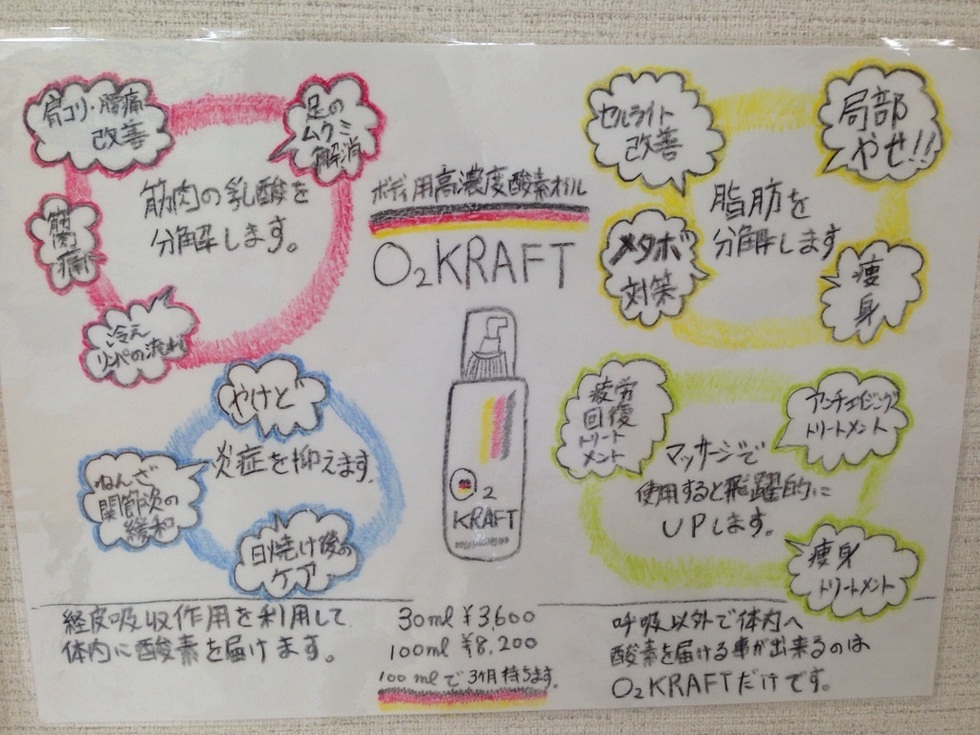 ボディ用高濃度酸素オイル
O2KRAFT
肩コリ・腰痛
改善
足の
ムクミ
解消
筋肉の乳酸を
分解します。
筋肉
痛
冷え
リンパの流れ
セルライト
改善
局部
やせ!!
脂肪を
分解します
メタボ
対策
痩
身
やけど
炎症を抑えます。
ねんざ
関節炎の
緩和
日焼け後の
ケア
O2
KRAFT
疲労
回復
トリート
メント
アンチエイジング
トリートメント
マッサージで
使用すると飛躍的に
UPします。
痩身
トリートメント
経皮吸収作用を利用して
体内に酸素を届けます。
30ml ¥3,600
100ml ¥8,200
100mlで3ヶ月持ちます。
呼吸以外で体内へ
酸素を届ける事が出来るのは
O2KRAFTだけです。